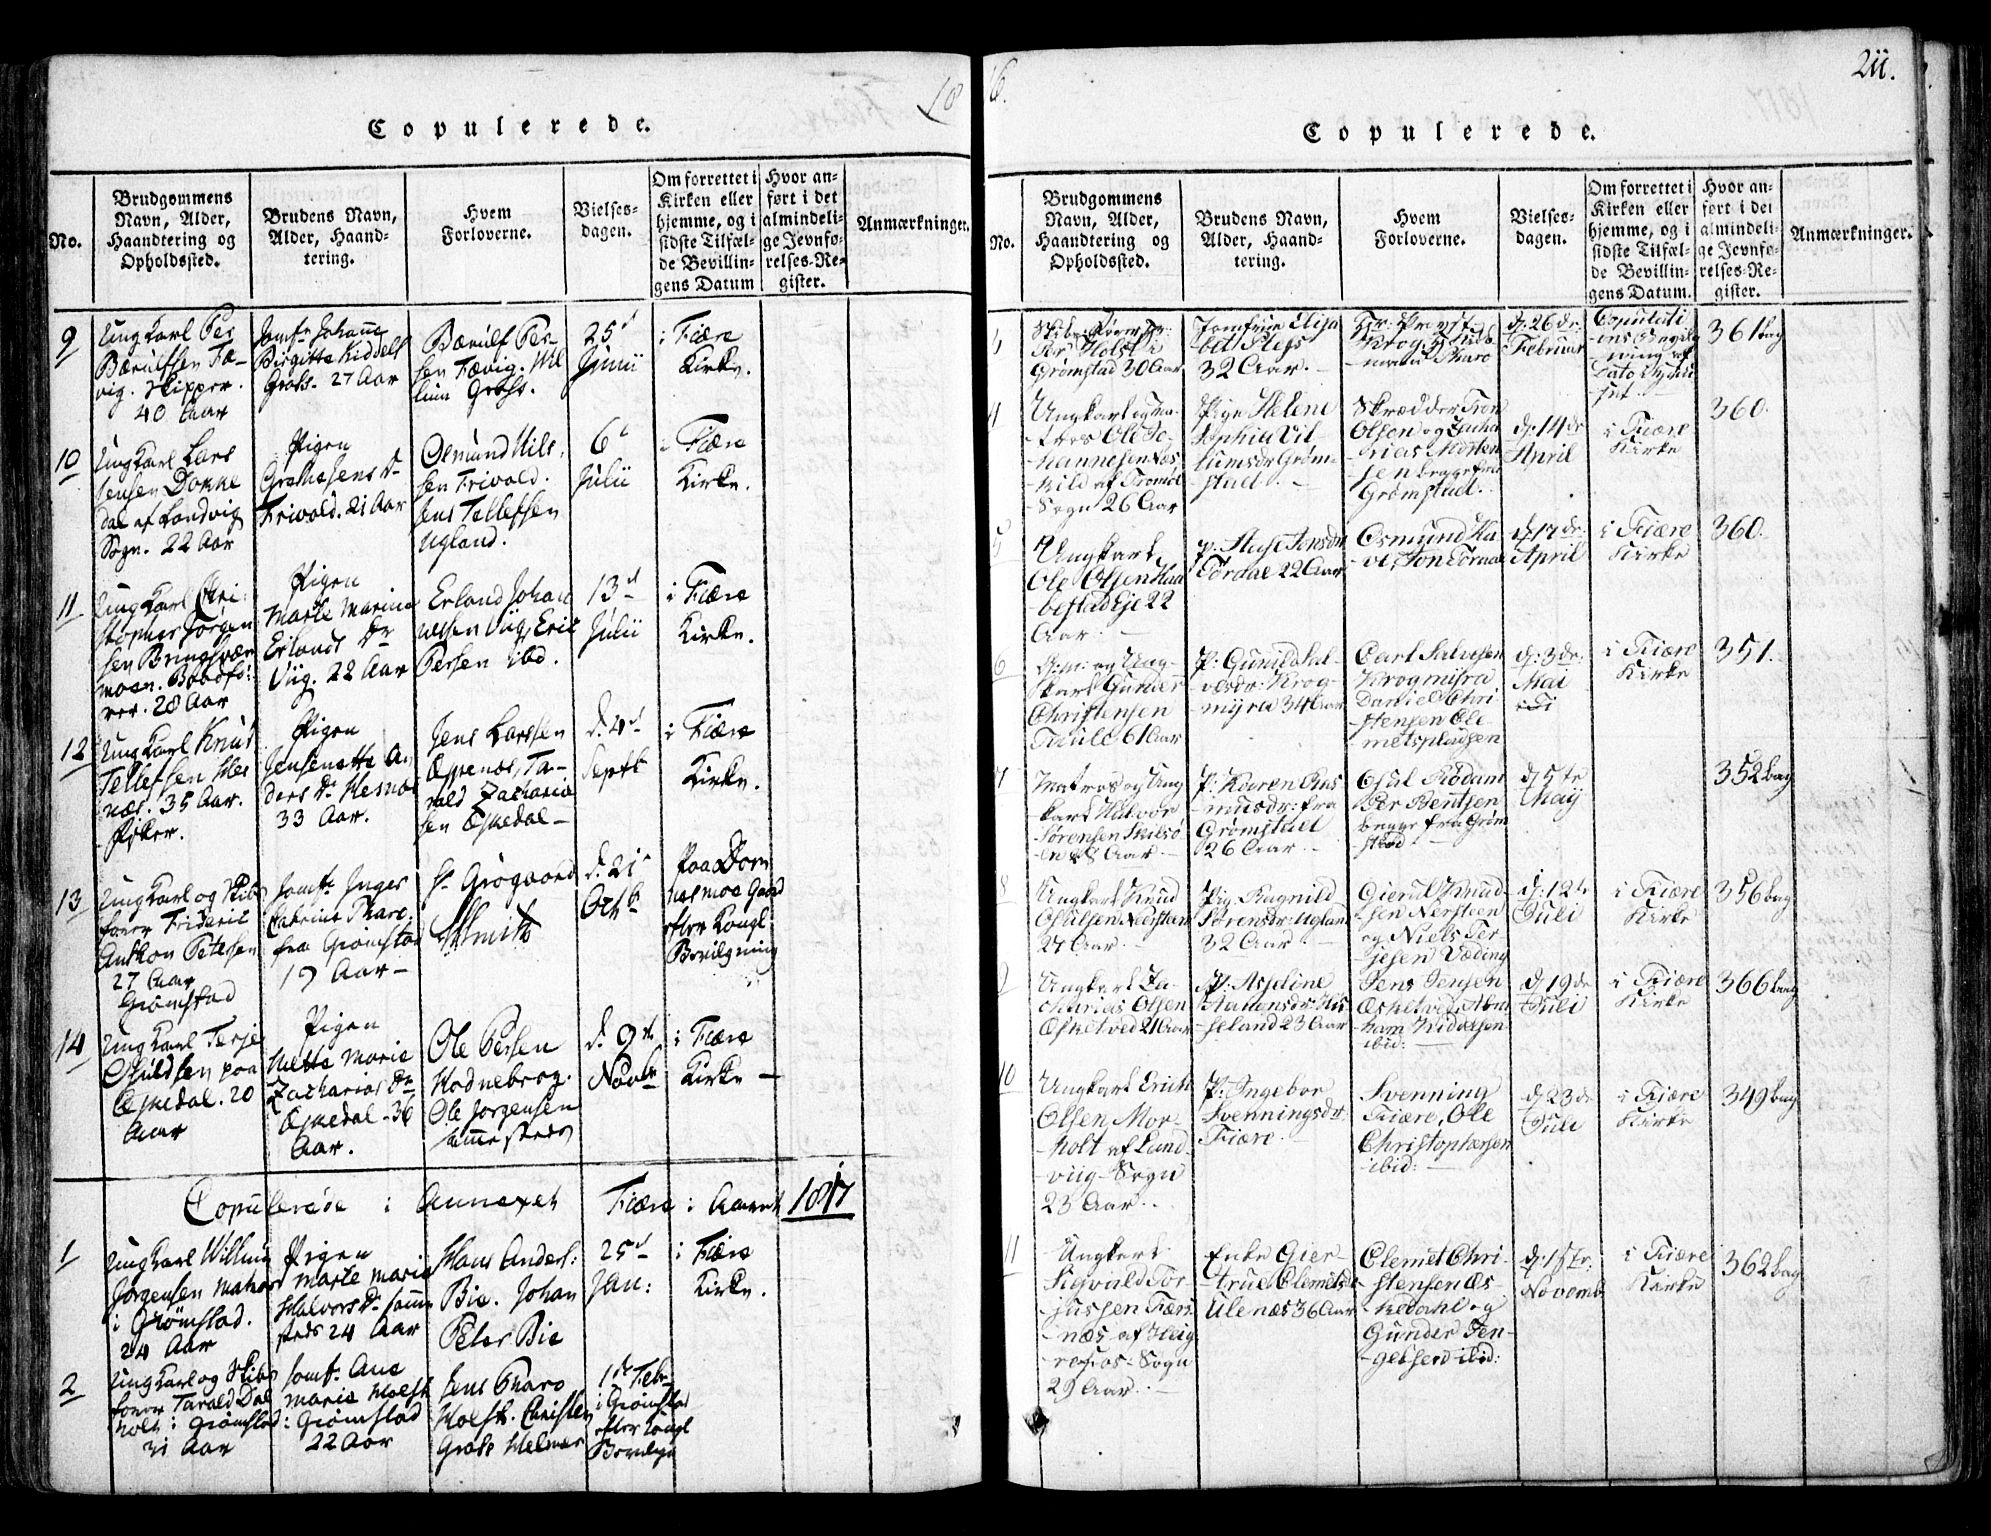 18
Copulerede.
No.
Brudgommens
Navn, Alder,
Haandtering og
Opholdssted.
Brudens Navn,
Alder, Haand-
tering.
Hvem
Forloverne.
Vielses-
dagen.
Om forrettet i
Kirken eller
hjemme, og i
sidste Tilfæl-
de Bevillin-
gens Datum
Hvor an-
ført i det
almindeli-
ge Jevnfø-
relses-Re-
gister.
Anmærkninger.
9
Ung Karl Per
Bærulfsen Fæ-
vig. Skipper.
40 Aar
Jomfr Johanne
Birgitte Kiddels
Grøss. 27 Aar
Bærulf Per-
sen Fævig. Wil
25d
Junii
i Fiære
Kirke.
10
Ung Karl Lars
Jensen Dokke
dal af Landvig
Sogn. 22 Aar
Pigen
Frivold. 21 Aar
Osmund Nils
sen Frivold.
Jens Tellefsen
Ugland.
6d
Julii
i Fiære
Kirke.
11
Ung Karl Chri-
stopher Jørgen
sen Bringsvær
moen. Baadfø-
rer. 28 Aar
Pigen
Marte Marina
Erlands Dr
Viig. 22 Aar
Erland Johan
nessen Viig, Eric
Persen ibd.
13d
Julii
i Fiære
Kirke.
12
Ung Karl Knud
Tellefsen Hes
næs. 35 Aar.
Fisker.
Pigen
Jensenette An
ders Dr Hesnæs
33 Aar.
Jens Larssen
Espenæs, Ta-
rald Zacharia
sen Eskedal-
d. 4d
Septb
i Fiære
Kirke.
13
Ung Karl og Skibs
fører Frideric
Anthon Petersen
27 Aar
Grømstad
Jomfr Inger
Catrine Pharo
fra Grømstad
19 Aar-
Hr Grøgaard
Schmith
d. 21
Octb
Paa Dom
mesmoe Gaard
efter Kongl
Bevilgning
14
Ung Karl Terje
Osuldsen paa
Eskedal. 20
Aar
Pigen
Mette Marie
Zacharias Dr
Eskedal-36
Aar.
Ole Persen
Hodnebrog.
Ole Jørgensen
sammesteds
d. 9de
Novbr
i Fiære
Kirke -
Copulerede i Annexet Fiære i Aaret 1817
1
Ung Karl Willum
Jørgensen Matros
i Grømstad.
24 Aar
Pigen
Marte Marie
Halvors Dr samme
steds 24 Aar
Hans Anders:
Bie. Johan
Peter Bie
25d
Jan:
i Fiære
Kirke.
2
Ung Karl og Skibs
fører Tarald Dal
holt i Grømstad
31 Aar
Jomfr. Ane
Marie Holst
i Grømstad
22 Aar
Jens Pharo
Holst. Christen
Grøss
1ste Febr
i Grømstad
efter Kongl
Bevilgn
6.
211.
Copulerede.
No.
Brudgommens
Navn, Alder,
Haandtering og
Opholdssted.
Brudens Navn,
Alder, Haand-
tering.
Hvem
Forloverne.
Vielses-
dagen.
Om forrettet i
Kirken eller
hjemme, og i
sidste Tilfæl-
de Bevillin-
gens Datum.
Hvor an-
ført i det
almindeli-
ge Jevnfø-
relses-Re-
gister.
Anmærkninger.
3
Grømstad 30 Aar
Jomfrue Elisa
32 Aar.
d: 26de
Februar
361 bag
4
Ungkarl og Ma-
tros Ole Jo-
Sogn 26 Aar
Pige Helene
Sophia Vil-
lumsdr Grøm-
stad.
Skrædder Tron
Olsen og Zacha
rias Morten
sen begge fra
Grømstad.
d: 14de
April
i Fiære
Kirke
360.
5
Ungkarl
Ole Olsen Haa
bestad Eje 22
Aar.
Tordal 22 Aar
Osmund Ha
ve, Jon Tordal
d: 17de
April
i Fiære
Kirke
360.
6
Gunder
Christensen
61 Aar
P: Gunild Sal-
vesdr: Krog-
myra 34 Aar
Carl Salvesen
Krogmyra
Daniel Chri
stensen Ole
metspladsen
d: 3de
Mai
i Fiære
Kirke
351.
7
Matros og Ung
karl Halvor
Sørensen
28 Aar.
P: Karen Ras
musdr: fra
Grømstad
26 Aar.
Osul Rødam
Per Bentsen
begge fra Grøm
stad
d: 5te
May
352 bag
8
Ungkarl Knud
Osulsen Nersteen
27 Aar.
Pig. Ragnild
Sørensdr: Ugland
32 Aar.
Gierul Knud-
sen Nersteen
og Niels Ter-
jesen Væding
d: 12te
Juli
i Fiære
Kirke
356 bag
9
Ungkarl Za-
charias Olsen
Esketved 21 Aar
P: Aspeline
seland 23 Aar
Jens Jensen
Esketved, Abra
ham Kiddelsen
ibid:
d: 19de
Juli
i Fiære
Kirke
366 bag
10
Ungkarl Erich
Olsen Mor-
holt af Land-
viig-Sogn
23 Aar.
P: Ingebor
Svenningsdr
Fiære.
Svenning
Fiære, Ole
Christophersen
ibid:
d: 23de
Juli
i Fiære
Kirke
349 bag
11
Ungkarl
Sigvald Tor
jussen Færs
næs af Heig
re as: Sogn
29 Aar.
Enke Gier-
true Clemetsdr
Ulenæs 36 Aar
Clemet Chri-
stensen Æs-
kedahl og
Gunder Ten-
gelsen ibid:
d: 1ste
Novemb
i Fiære
Kirke
362 bag